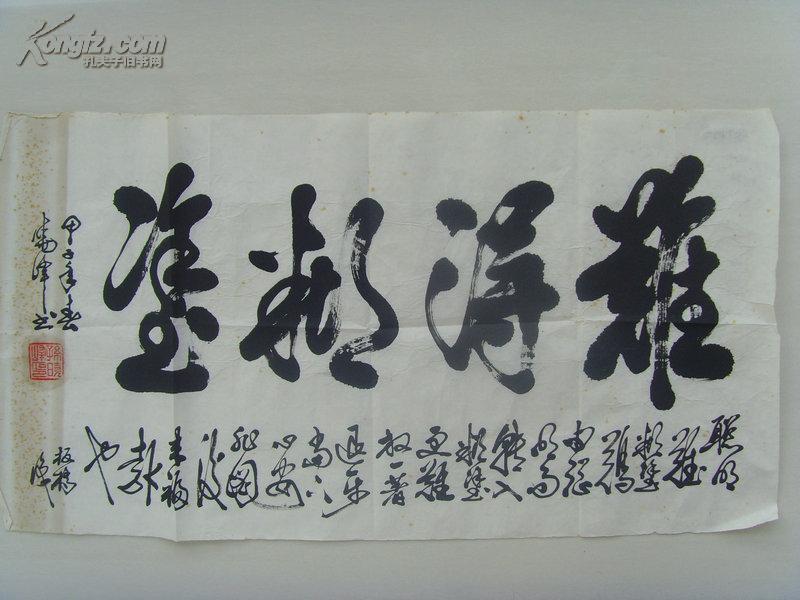 Kongfz.com
孔夫子旧书网
難得糊塗
聪明
難
糊塗
難
由聪
明而
轉入
糊塗
更難
放一著
退一步
當下
心安
非圖
後
来福
報
也
板橋
識
甲子年春
書